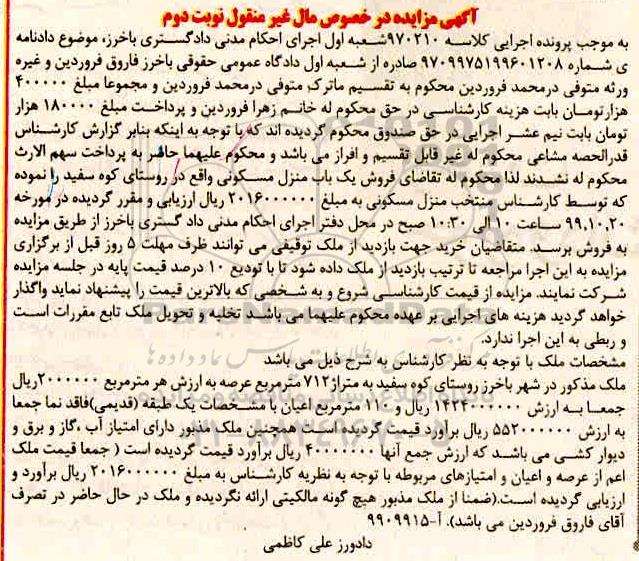 آگهی مزایده در خصوص مال غیر منقول نوبت دوم
به موجب پرونده اجرایی کلاسه ۹۷۰۲۱۰شعبه اول اجرای احکام مدنی دادگستری باخرز، موضوع دادنامه
ی شماره ۹۷۰۹۹۷۵۱۹۹۶۰۱۲۰۸ صادره از شعبه اول دادگاه عمومی حقوقی باخرز فاروق فروردین و غیره
ورثه متوفی درمحمد فروردین محکوم به تقسیم ماترک متوفی درمحمد فروردین و مجموعا مبلغ ۴۰۰۰۰۰
هزارتومان بابت هزینه کارشناسی در حق محکوم له خانم زهرا فروردین و پرداخت مبلغ ۱۸۰۰۰۰ هزار
تومان بابت نیم عشر اجرایی در حق صندوق محکوم گردیده اند که با توجه به اینکه بنابر گزارش کارشناس
قدرالحصه مشاعی محکوم له غیر قابل تقسیم و افراز می باشد و محکوم علیهما حاضر به پرداخت سهم الارث
محکوم له نشدند لذا محکوم له تقاضای فروش یک باب منزل مسکونی واقع در روستای کوه سفید را نموده
که توسط کارشناس منتخب منزل مسکونی به مبلغ ۲۰۱۶۰۰۰۰۰۰ ریال ارزیابی و مقرر گردیده در مورخه
۹۹،۱۰،۲۰ ساعت ۱۰ الی ۱۰:۳۰ صبح در محل دفتر اجرای احکام مدنی داد گستری باخرز از طریق مزایده
به فروش برسد. متقاضیان خرید جهت بازدید از ملک توقیفی می توانند ظرف مهلت ۵ روز قبل از برگزاری
مزایده به این اجرا مراجعه تا ترتیب بازدید از ملک داده شود تا با تودیع ۱۰ درصد قیمت پایه در جلسه مزایده
شرکت نمایند. مزایده از قیمت کارشناسی شروع و به شخصی که بالاترین قیمت را پیشنهاد نماید واگذار
خواهد گردید هزینه های اجرایی بر عهده محکوم علیهما می باشد تخلیه و تحویل ملک تابع مقررات است
و ربطی به این اجرا ندارد.
مشخصات ملک با توجه به نظر کارشناس به شرح ذیل می باشد
ملک مذکور در شهر باخرز روستای کوه سفید به متراژ۷۱۲ مترمربع عرصه به ارزش هر مترمربع ۲۰۰۰۰۰۰ریال
جمعا به ارزش ۱۴۲۴۰۰۰۰۰۰ ریال و ۱۱۰ مترمربع اعیان با مشخصات یک طبقه (قدیمی)فاقد نما جمعا
به ارزش ۵۵۲۰۰۰۰۰۰ ریال برآورد قیمت گردیده است همچنین ملک مذبور دارای امتیاز آب ،گاز و برق و
دیوار کشی می باشد که ارزش جمع آنها ۴۰۰۰۰۰۰۰ ریال برآورد قیمت گردیده است ( جمعا قیمت ملک
اعم از عرصه و اعیان و امتیازهای مربوطه با توجه به نظریه کارشناس به مبلغ ۲۰۱۶۰۰۰۰۰۰ ریال برآورد و
ارزیابی گردیده است.(ضمنا از ملک مذبور هیچ گونه مالکیتی ارائه نگردیده و ملک در حال حاضر در تصرف
آقای فاروق فروردین می باشد). آ-۹۹۰۹۹۱۵
دادورز علی کاظمی